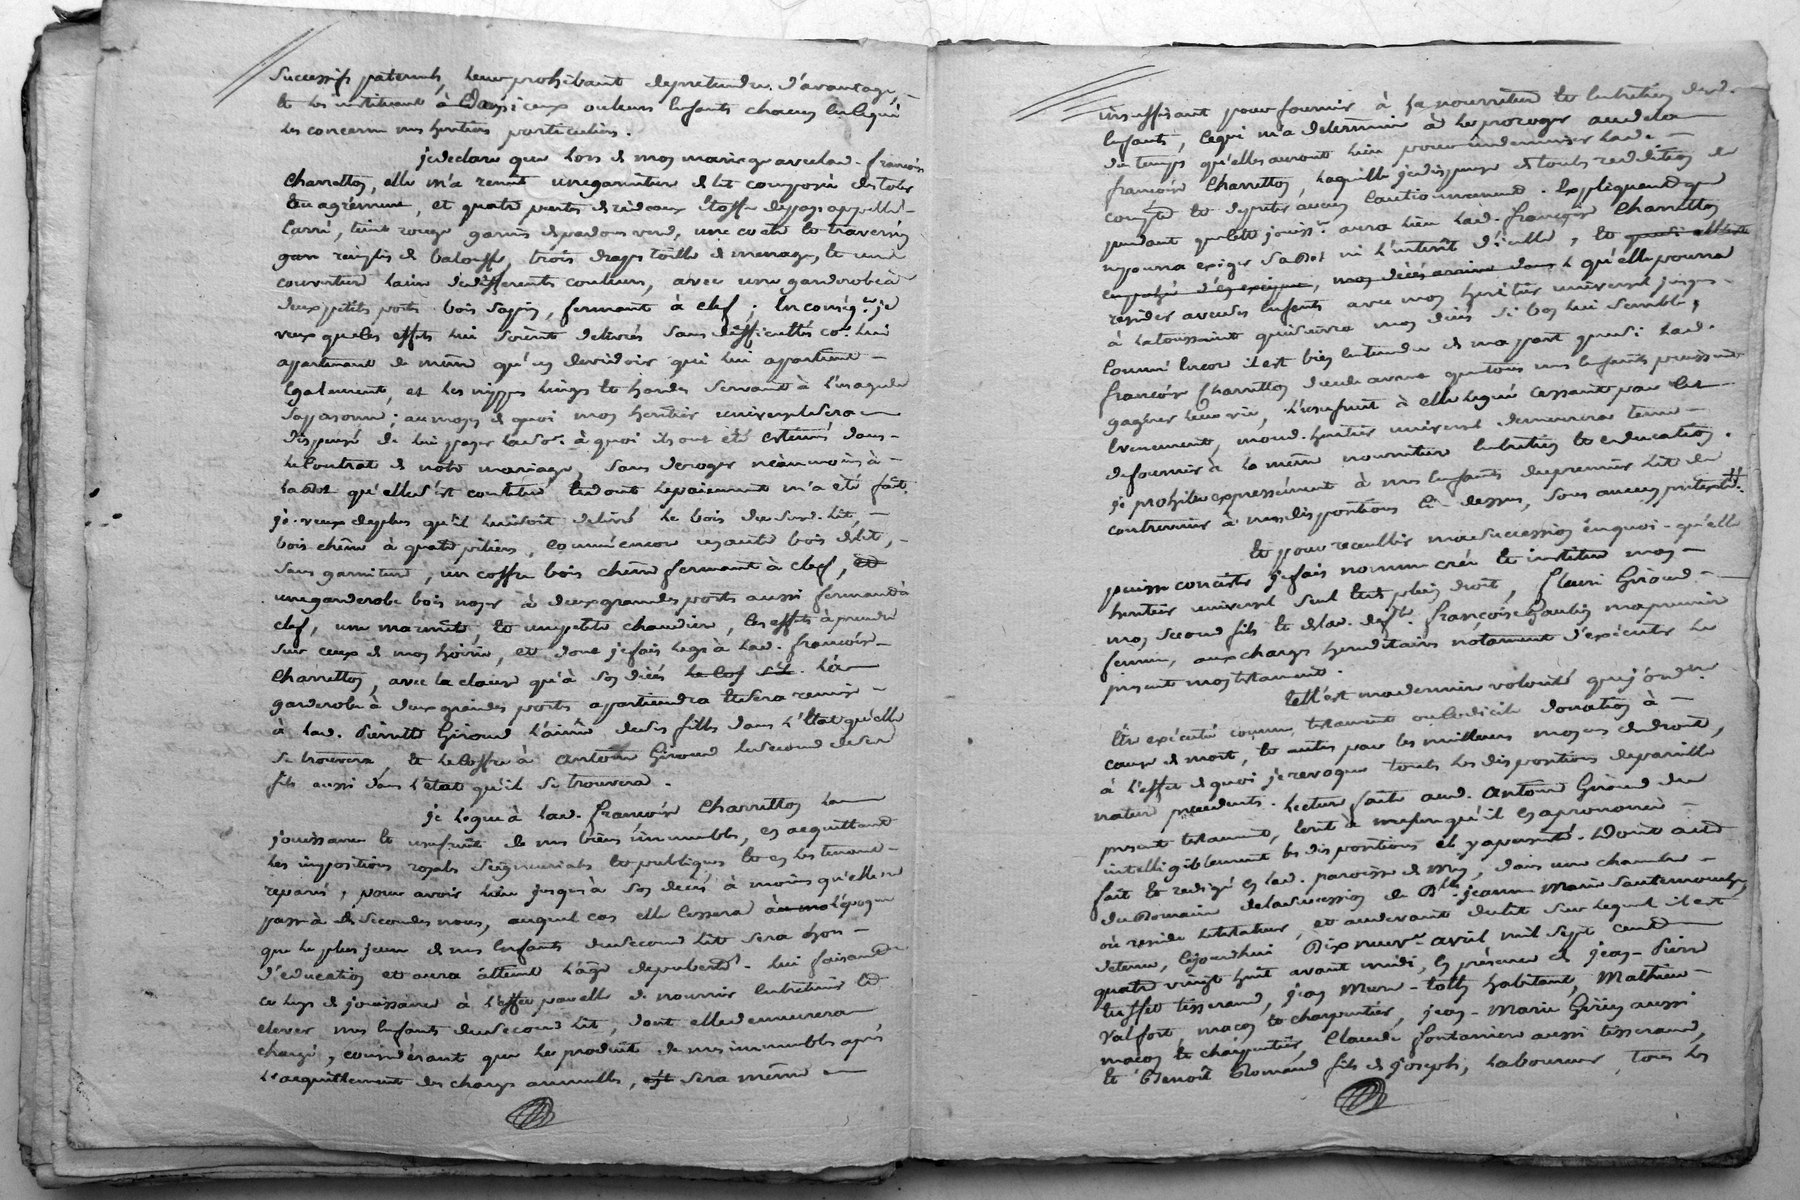 Successifs paternels, leur prohibant de pretendre d'avantage,
et les instituant à ceux ou leurs Enfants chacun en ce qui
les concerne mes heritiers particuliers.
je declare que lors de mon mariage avec lad. françoise
Charretton, elle m'a remit une garniture de lit composée de toile
et quatre pentes de rideaux étoffe du pays appellé
Carré, teint rouge garnis de padoux verd, une coete et traversin
gar remplis de balouffe, trois draps toille de menage, et une
couverture laine de differents couleurs, avec une garderobe à
deux petits ports bois sappin, fermant à clef ; En conséq.ce je
veux que les effets lui soient delivrés sans difficultés co.e lui
appartenant de même qu'un devidoir qui lui appartient
Egalement, et les nippes linges et hardes servant à l'usage de
sa personne ; au moyen de quoi mon heritier universel sera
dispensé de lui payer à quoi ils ont été estimés dans
le Contrat de notre mariage, sans deroger néanmoins à
la Dot qu'elle s'est constitué et dont le paiement m'a été fait.
je veux de plus qu'il lui soit delivré le bois du susd. lit,
bois chêne à quatre piliers, comm'encore un autre bois de lit,
sans garniture, un coffre bois chêne fermant à clef, et
une garderobe bois noyer à deux grandes ports aussi fermant à
clef, une marmite, et une petite chaudiere, les effets à prendre
sur ceux de mon hoirie, et dont je fais legs à lad. françoise
Charretton, avec la clause qu'à son décès le cof s'il la
garderobe à deux grandes ports appartiendra et sera remise
à lad. Pierrette Giroud l'ainée de ses filles dans l'Etat qu'elle
se trouvera, et le Coffre à Antoine Giroud le second de ses
fils aussi dans l'état qu'il se trouvera.
je legue à lad. françoise Charretton la
jouissance et usufruit de mes biens immeubles, en acquittant
les impositions royales Seigneuriales et publiques, et en les tenant
reparés, pour avoir lieu jusqu'à son decès à moins qu'elle ne
passe à de secondes noces, auquel cas elle cessera à l'époque
que le plus jeune de mes Enfants du second lit sera hors
d'education et aura atteint l'âge de puberté. lui faisant
ce legs de jouissance à l'effet par elle de nourrir entretenir et
elever mes Enfants du second lit, dont elle demeurera
chargé, considérant que le produit de mes immeubles après
l'acquittement des charges annuelles, est sera même
insuffisant pour fournir à la nourriture et entretien desd.
Enfants, ce qui m'a determiné à le proroger au dela
du temps qu'elles auront lieu pour indemniser lad.
françoise Charretton, laquelle je dispense de toute reddition de
compte et de preter aucun Cautionnement. Expliquant que
pendant que cette jouiss.ce aura lieu lad. françoise Charretton
ne pourra exiger sa Dot ni l'interêt d'icelle, et
qu'elle pourra
resider avec ses Enfants avec mon heritier universel jusques
à la toussaint qui suivra mon decès si bon lui semble,
Comm'Encore il est bien entendu de ma part que si lad.
françoise Charretton decede avant que tous mes enfants puissent
gagner leur vie, l'usufruit à elle legué cessant par cet
Evenement, mond. heritier universel demeurera tenu
de fournir à la même nourriture entretien et education.
je prohibe expressément à mes Enfants du premier lit de
contrevenir à mes dispositions ci-dessus, sous aucun pretexte.
Et pour recueillir ma succession en quoi qu'elle
puisse consister je fais nomme crée et institue mon
heritier universel seul et de plein droit, fleuri Giroud
mon second fils et de lad. def.te françoise Gaulin ma premiere
femme, aux charges hereditaires notament d'exécuter le
present mon testament.
telle est ma derniere volonté que j'ord.e
être exécutée comme testament ou Codicile donation à
cause de mort, et autres par les meilleurs moyens de droit,
à l'effet de quoi je revoque toutes les dispositions de pareille
nature precedents. Lecture faite aud. Antoine Giroud du
present testament, écrit à mesure qu'il en a prononcé
intelligiblement les dispositions et y a persisté. Dont acte
fait et redigé en lad. paroisse de dans une chambre
du Domaine de la succession de D.lle jeanne Marie
où reside le testateur, et au devant du lit sur lequel il est
detenu, cejourdhui Dix neuf avril mil sept cent
quatre vingt huit avant midi, en présence de jean-Pierre
tisserand, jean habitant, Mathieu
Valfort, maçon et charpentier, jean-Marie aussi
maçon et charpentier, Claude fontanier aussi tisserand,
et Benoît Romand fils de joseph, laboureur, tous les